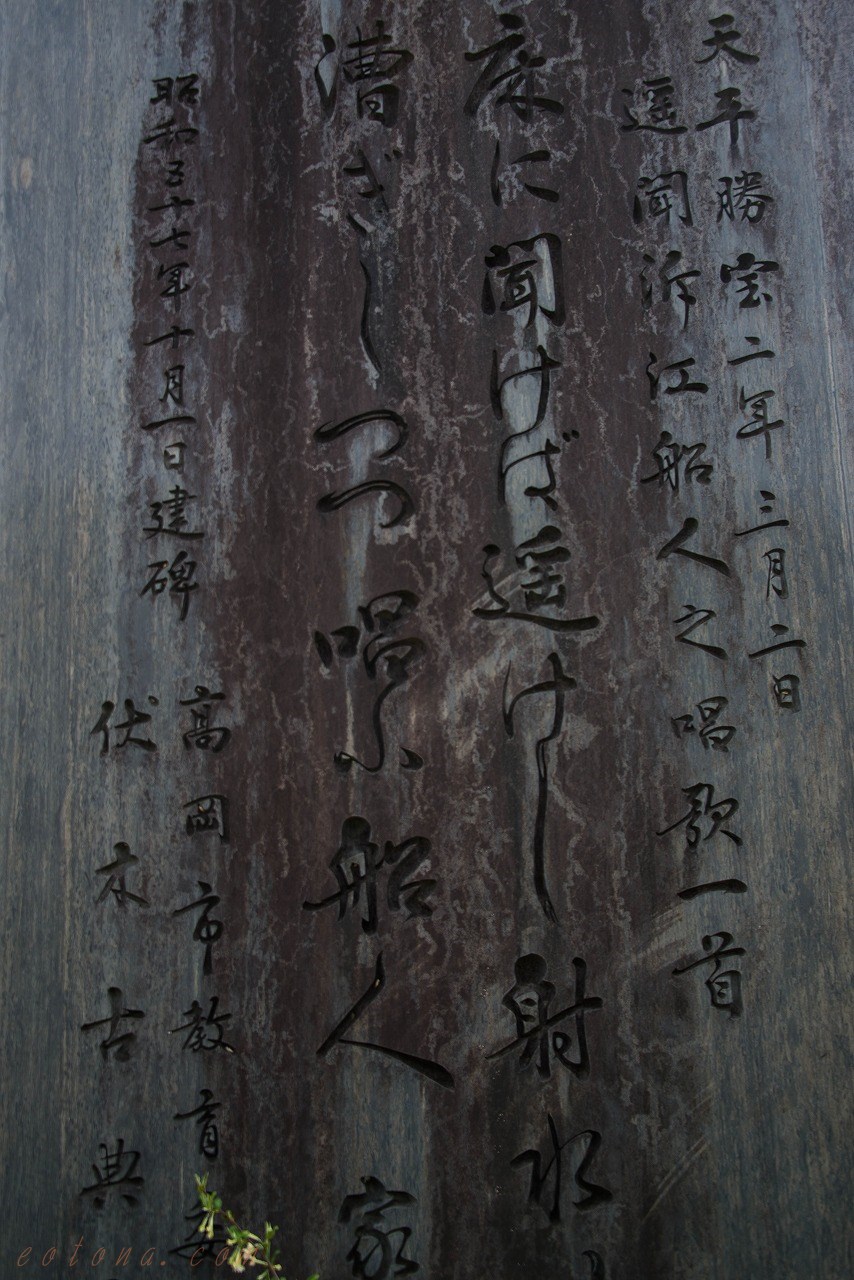 天平勝宝二年三月二日
遥聞泝江船人之唱歌一首
床に聞けば遥けし射水
漕ぎしつつ唱ふ船人 家
昭和五十七年十月一日建碑
高岡市教育委
伏木古典
eotona.com